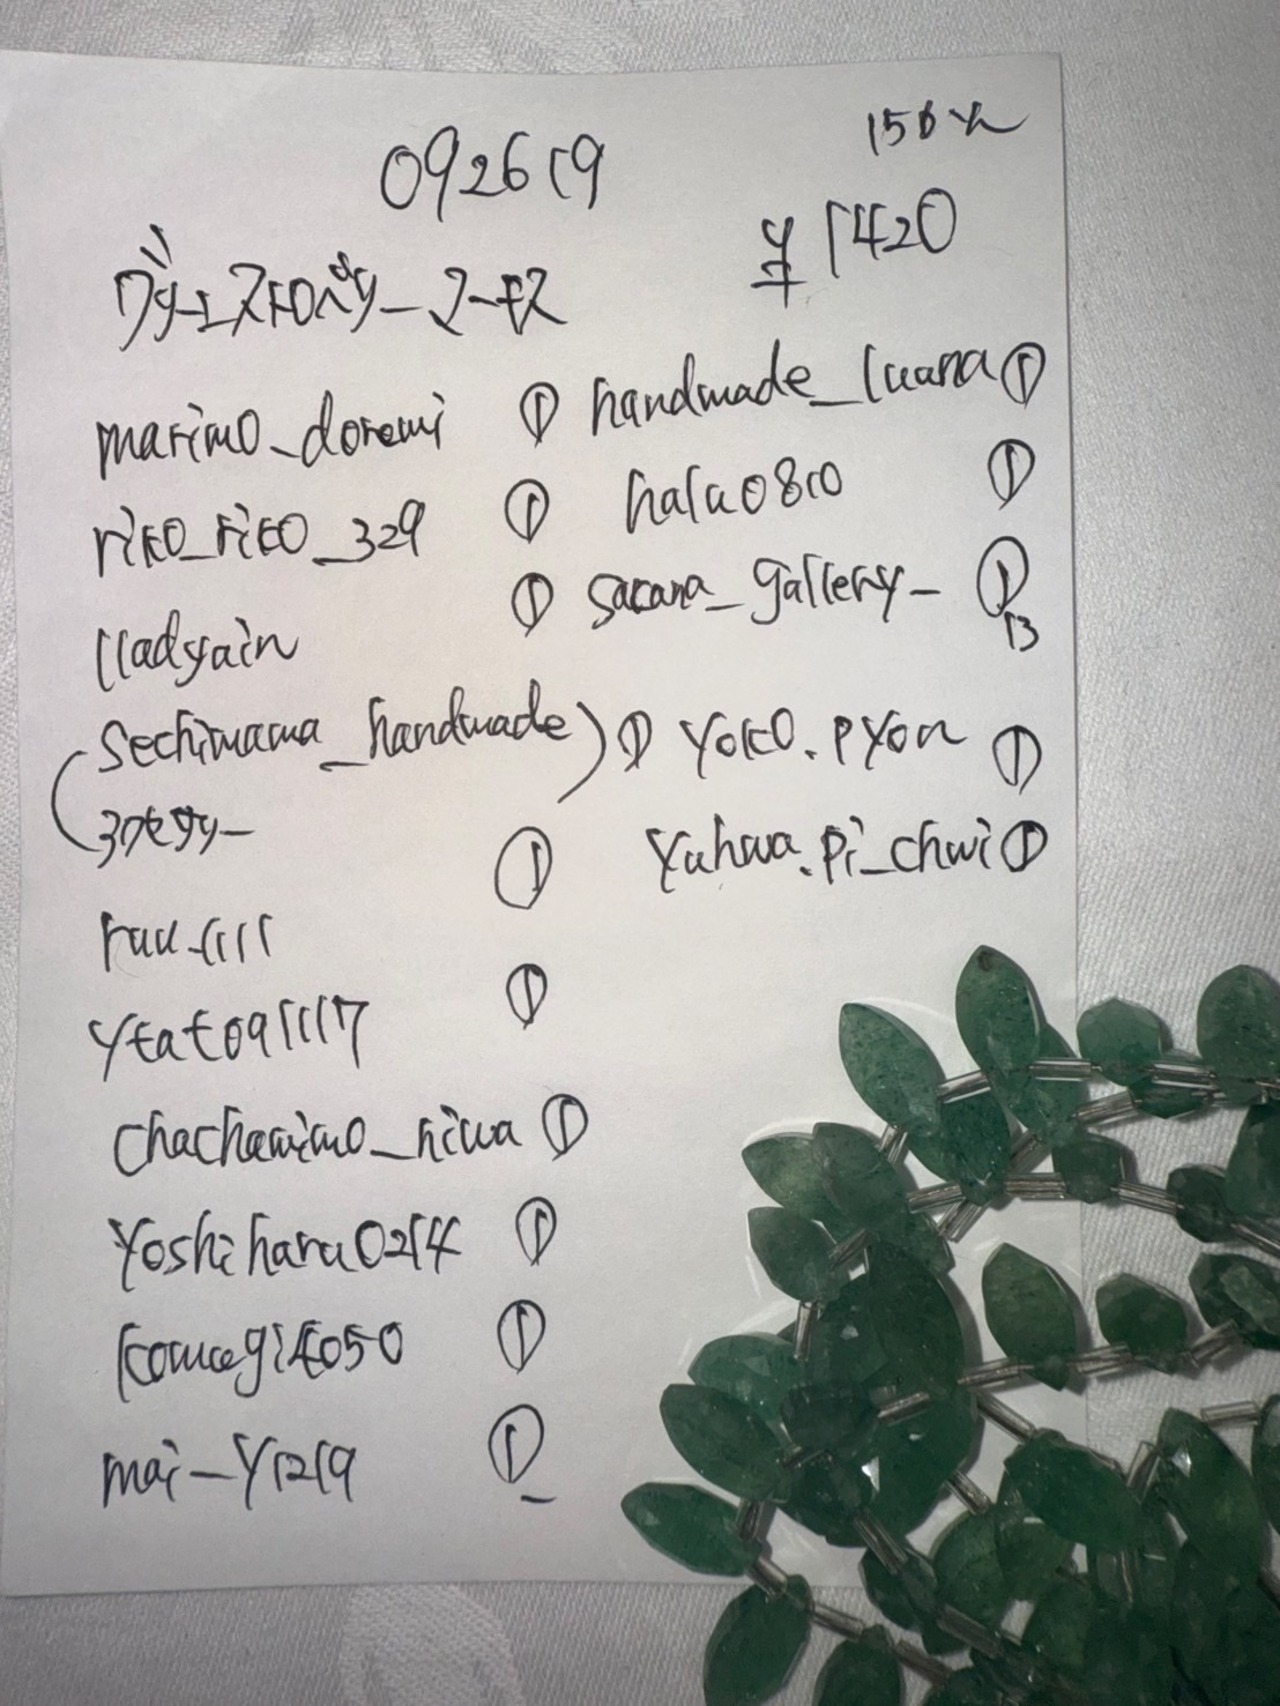 092619
150人
¥1420
グリーンストロベリーマーキス
marimo_doremi ①
riko_riko_329 ①
lladyain ①
(sechimama_handmade) ①
ruu_1111 ①
ytat091117 ①
chachamimo_niwa ①
yoshiharu0214 ①
komagik050 ①
mai_y1219 ①
handmade_luana ①
halu0810 ①
sacana_gallery_ ①
13
yoko.pyon ①
yuhwa.pi_chwi ①